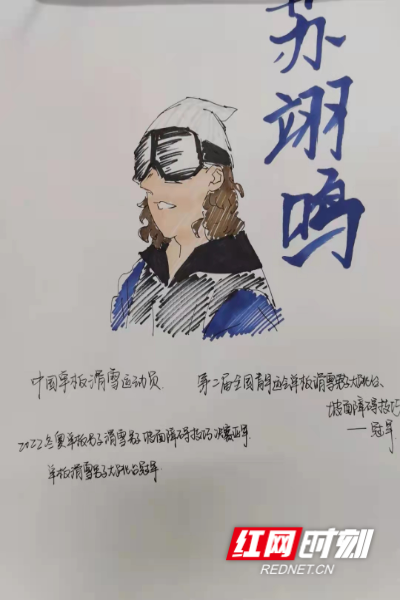 苏翊鸣
中国单板滑雪运动员
第二届全国青运会单板滑雪男子大跳台、
坡面障碍技巧
——冠军
2022冬奥单板男子滑雪男子坡面障碍技巧决赛亚军
单板滑雪男子大跳台冠军
红网时刻
REDNET.CN